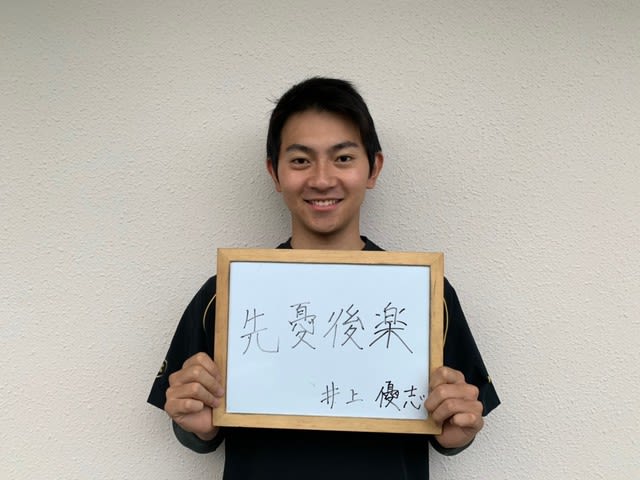 先憂後楽
井上 優志